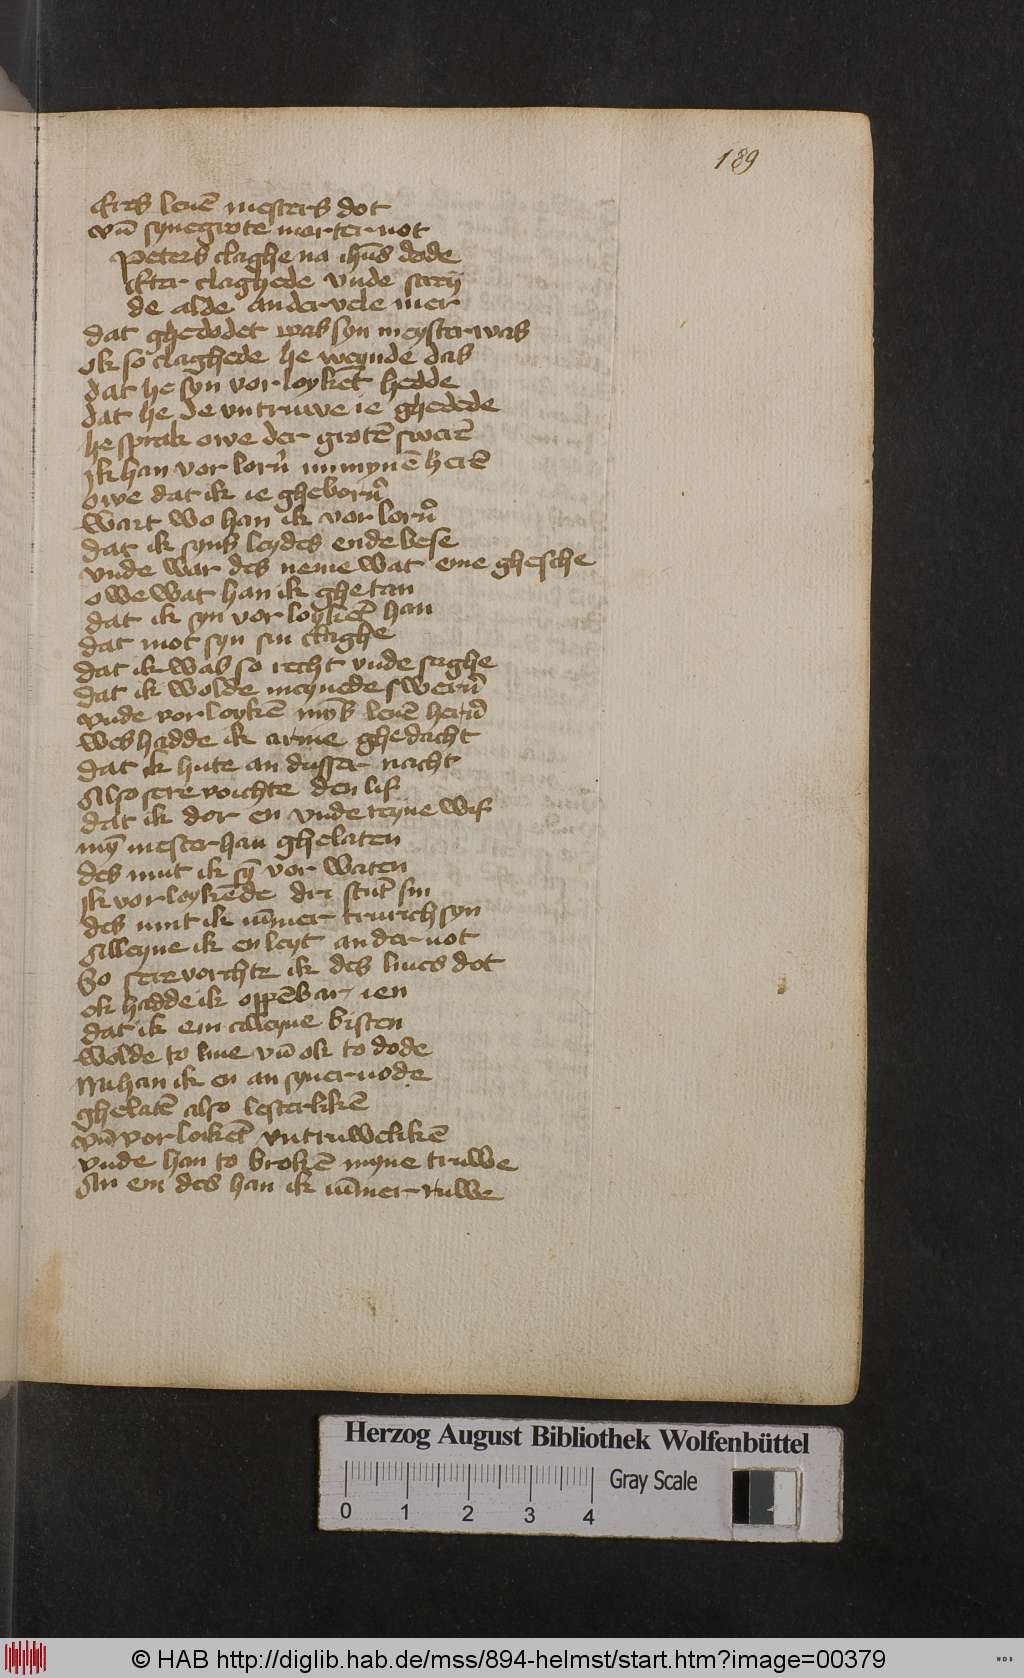 189
Eres leuē mesters dot
vn̄ syne grote marter not
Peters claghe na ih̄us dode
Eter claghede vnde screy
de alde ander vele mer
dat ghedodet was syn meyster was
ok so claghede he weynde das
dat he syn vor loykēt hedde
dat he de vntruwe ie ghedede
he sprak owe der grotē swerē
ik han vor lorn̄ mynē herē
owe dat ik ie gheborn̄
wart wo han ik vor lorn̄
dat ik syns leydes ende bese
vnde war des neme wat eme ghesche
owe wat han ik ghe tan
dat ik syn vor loykēt han
dat mot syn min claghe
dat ik was so recht vnde seghe
dat ik wolde meynede swern̄
vnde vorloykē myns leuē hern̄
wes hadde ik arme ghedacht
dat ik hute an dusser nacht
Also sere voichte den lif
dat ik dor en vnde teyne wif
my mester han ghelaten
des mut ik sȳ vor waten
ik vorloykēde dri stut sin
des mut ik ūmer trurich syn
Alleyne ik en leyt an der not
So sere vorchte ik des liues dot
ok hadde ik oppēbar ien
dat ik em alleyne bisten
wolde to liue vn̄ ok to dode
Nu han ik en an syner node
ghelatē also lesterlikē
vn̄ vor loikēt vntruwelikē
vnde han to brokē myne truwe
An em des han ik ūmer ruwe
Herzog August Bibliothek Wolfenbüttel
Gray Scale
0 1 2 3 4
© HAB http://diglib.hab.de/mss/894-helmst/start.htm?image=00379